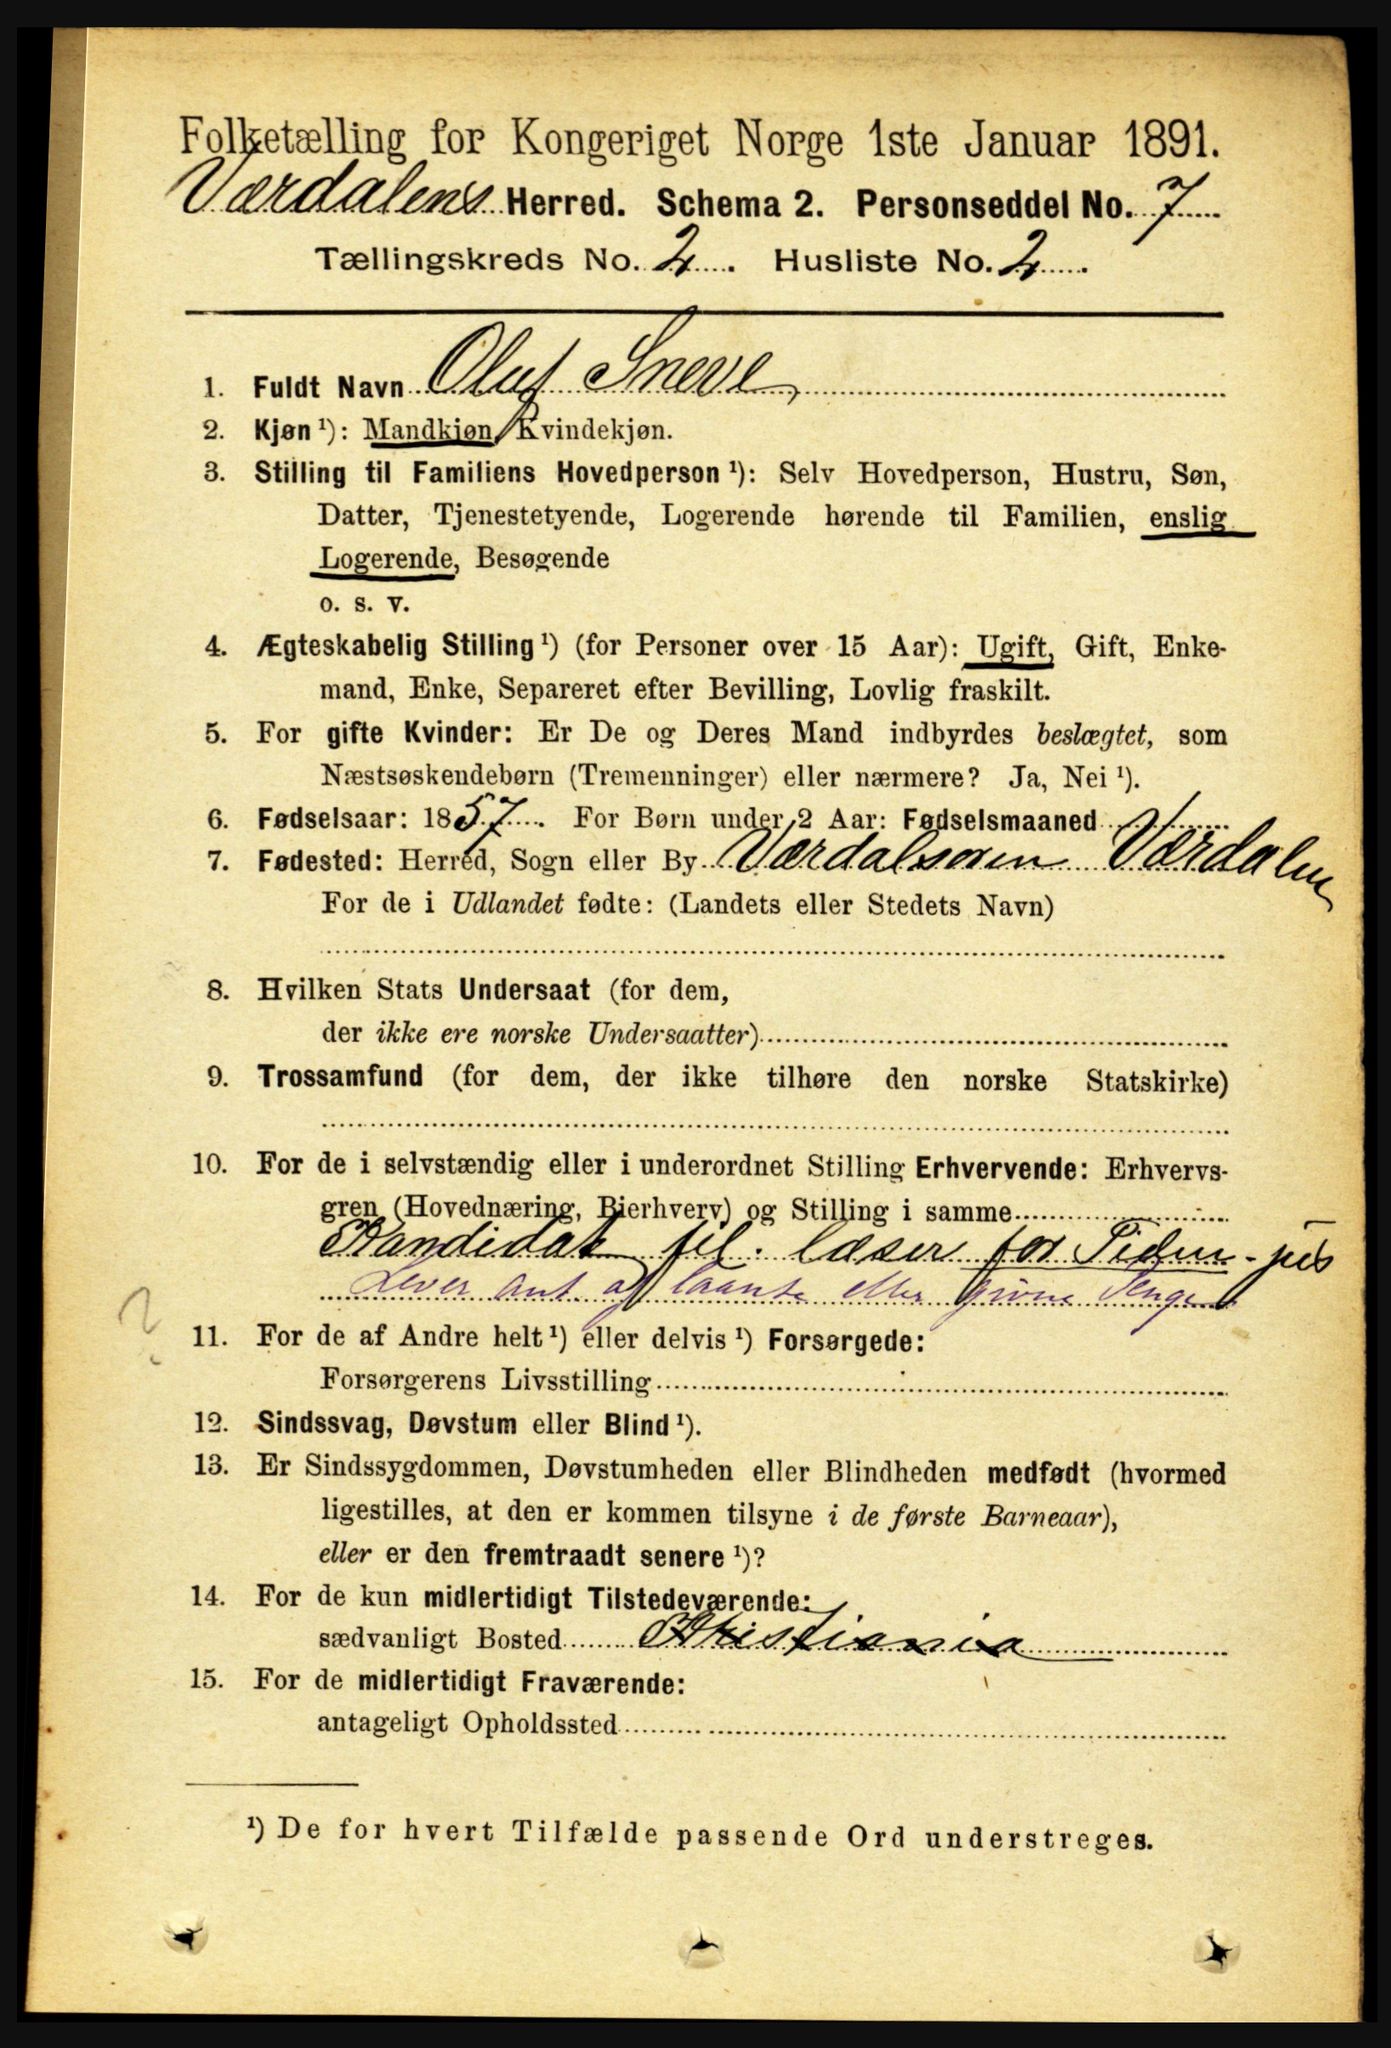 Folketælling for Kongeriget Norge 1ste Januar 1891.
Værdalens Herred. Schema 2. Personseddel No. 7
Tællingskreds No. 2. Husliste No. 2
1. Fuldt Navn Oluf Sneve
2. Kjøn ¹): Mandkjøn, Kvindekjøn.
3. Stilling til Familiens Hovedperson ¹): Selv Hovedperson, Hustru, Søn,
Datter, Tjenestetyende, Logerende hørende til Familien, enslig
Logerende, Besøgende
o. s. v.
4. Ægteskabelig Stilling ¹) (for Personer over 15 Aar): Ugift, Gift, Enke-
mand, Enke, Separeret efter Bevilling, Lovlig fraskilt.
5. For gifte Kvinder: Er De og Deres Mand indbyrdes beslægtet, som
Næstsøskendebørn (Tremenninger) eller nærmere? Ja, Nei ¹).
6. Fødselsaar: 1857. For Børn under 2 Aar: Fødselsmaaned
7. Fødested: Herred, Sogn eller By Værdalsøren Værdalen
For de i Udlandet fødte: (Landets eller Stedets Navn)
8. Hvilken Stats Undersaat (for dem,
der ikke ere norske Undersaatter)
9. Trossamfund (for dem, der ikke tilhøre den norske Statskirke)
10. For de i selvstændig eller i underordnet Stilling Erhvervende: Erhvervs-
gren (Hovednæring, Bierhverv) og Stilling i samme
Kandidat fil. læser for Tiden - jus
Lever ant. af laante eller givne Penge
?
11. For de af Andre helt ¹) eller delvis ¹) Forsørgede:
Forsørgerens Livsstilling
12. Sindssvag, Døvstum eller Blind ¹).
13. Er Sindssygdommen, Døvstumheden eller Blindheden medfødt (hvormed
ligestilles, at den er kommen tilsyne i de første Barneaar),
eller er den fremtraadt senere ¹)?
14. For de kun midlertidigt Tilstedeværende:
sædvanligt Bosted Kristiania
15. For de midlertidigt Fraværende:
antageligt Opholdssted
¹) De for hvert Tilfælde passende Ord understreges.